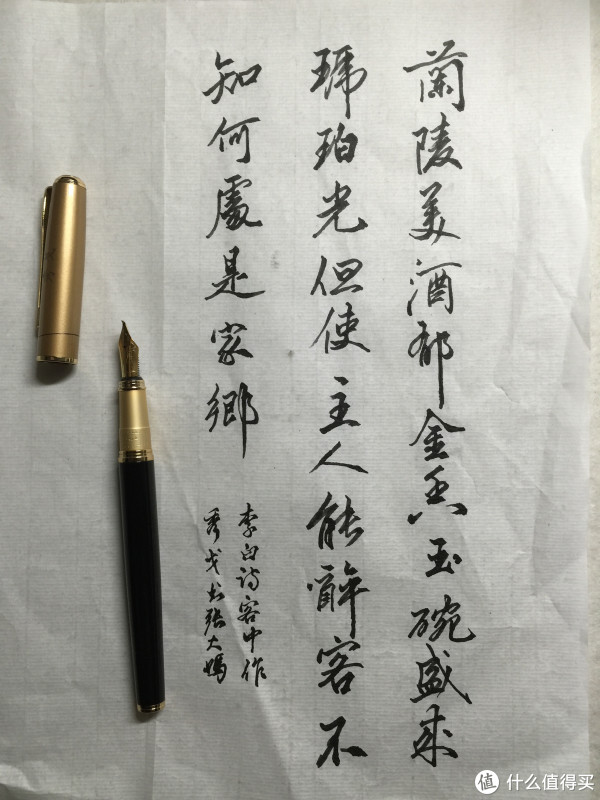 蘭陵美酒郁金香玉碗盛来
琥珀光但使主人能醉客不
知何處是家鄉
李白诗客中作
戈书张大媽
值 什么值得买